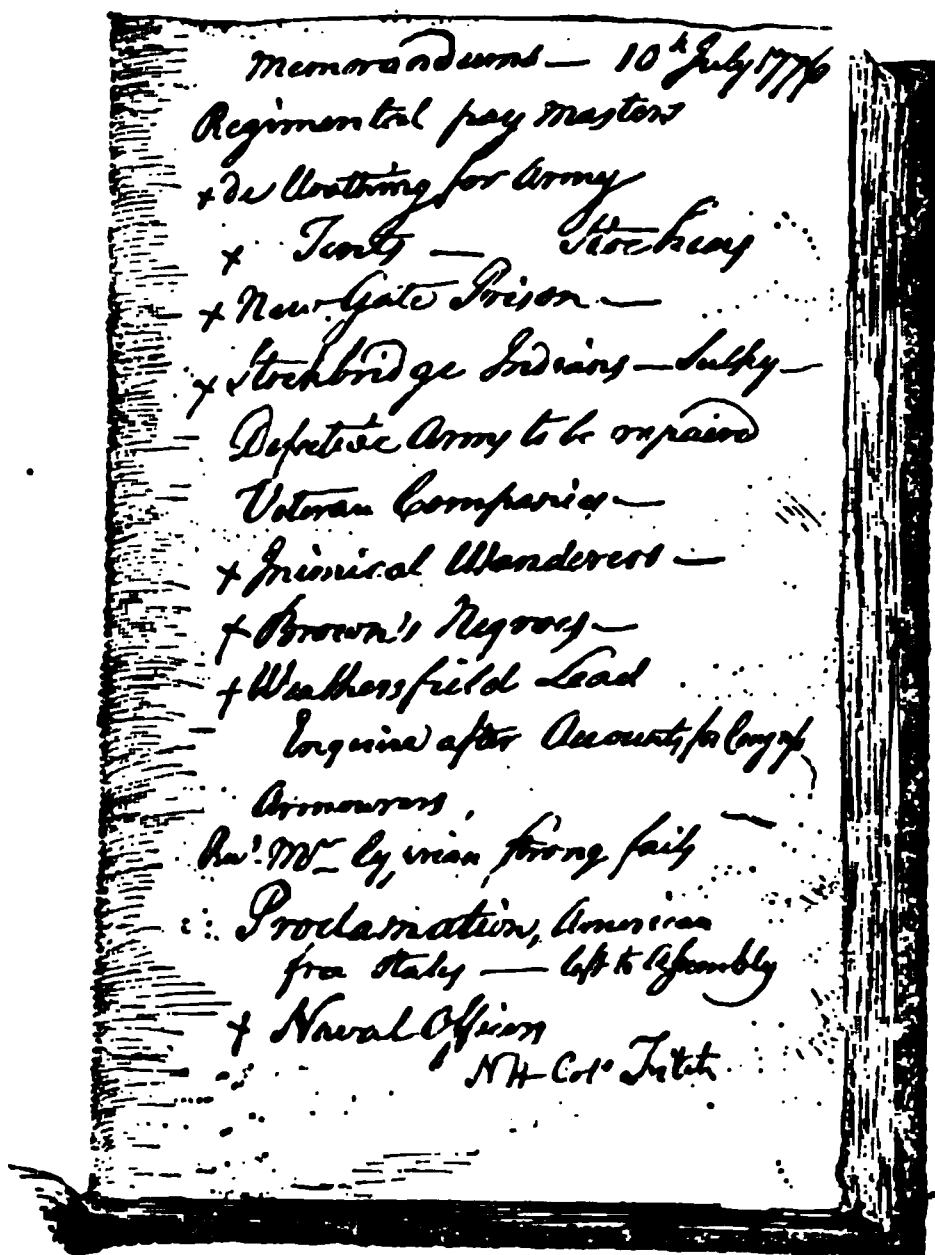 Memorandums — 10th July 1776
Regimental pay masters
+ Do Cloathing for Army
+ Tents — Stockings
+ New Gate Prison —
+ Stockbridge Indians — Sulky —
Defective Arms to be repaired
Veteran Companies —
+ Inimical Wanderers —
+ Brown's Negroes —
+ Weathersfield Lead
Enquire after Accounts for Congress
Armourers,
Revd. Mr
Proclamation, American
free States — left to Assembly
+ Naval Officers
NH Colo Fitch